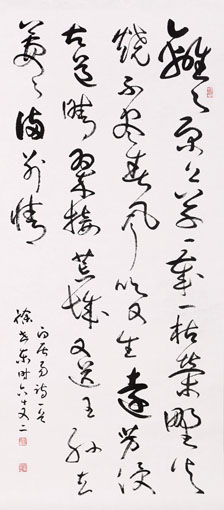 離々原上草一歲一枯榮野火
燒不盡春風吹又生遠芳侵
古道晴翠接荒城又送王孫去
萋々滿别情
白居易詩一首
徐 东时六十又二